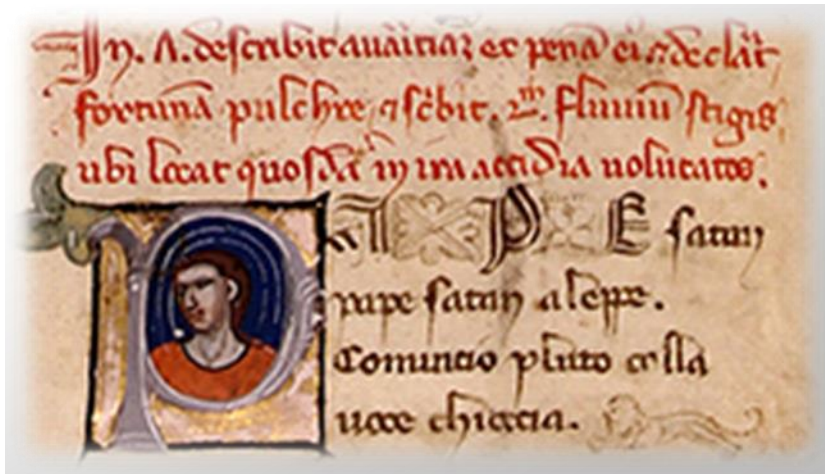 In. Λ. describit auaritiaʒ et penā ei. ⁊ declārt
fortunā pulchre ⁊ scbit. 2m. fluuiū stigis
ubi locat quosdā in ira accidia uolutatos.
P A P E satan
pape satan aleppe.
Cominciò pluto colla
uoce chioccia.